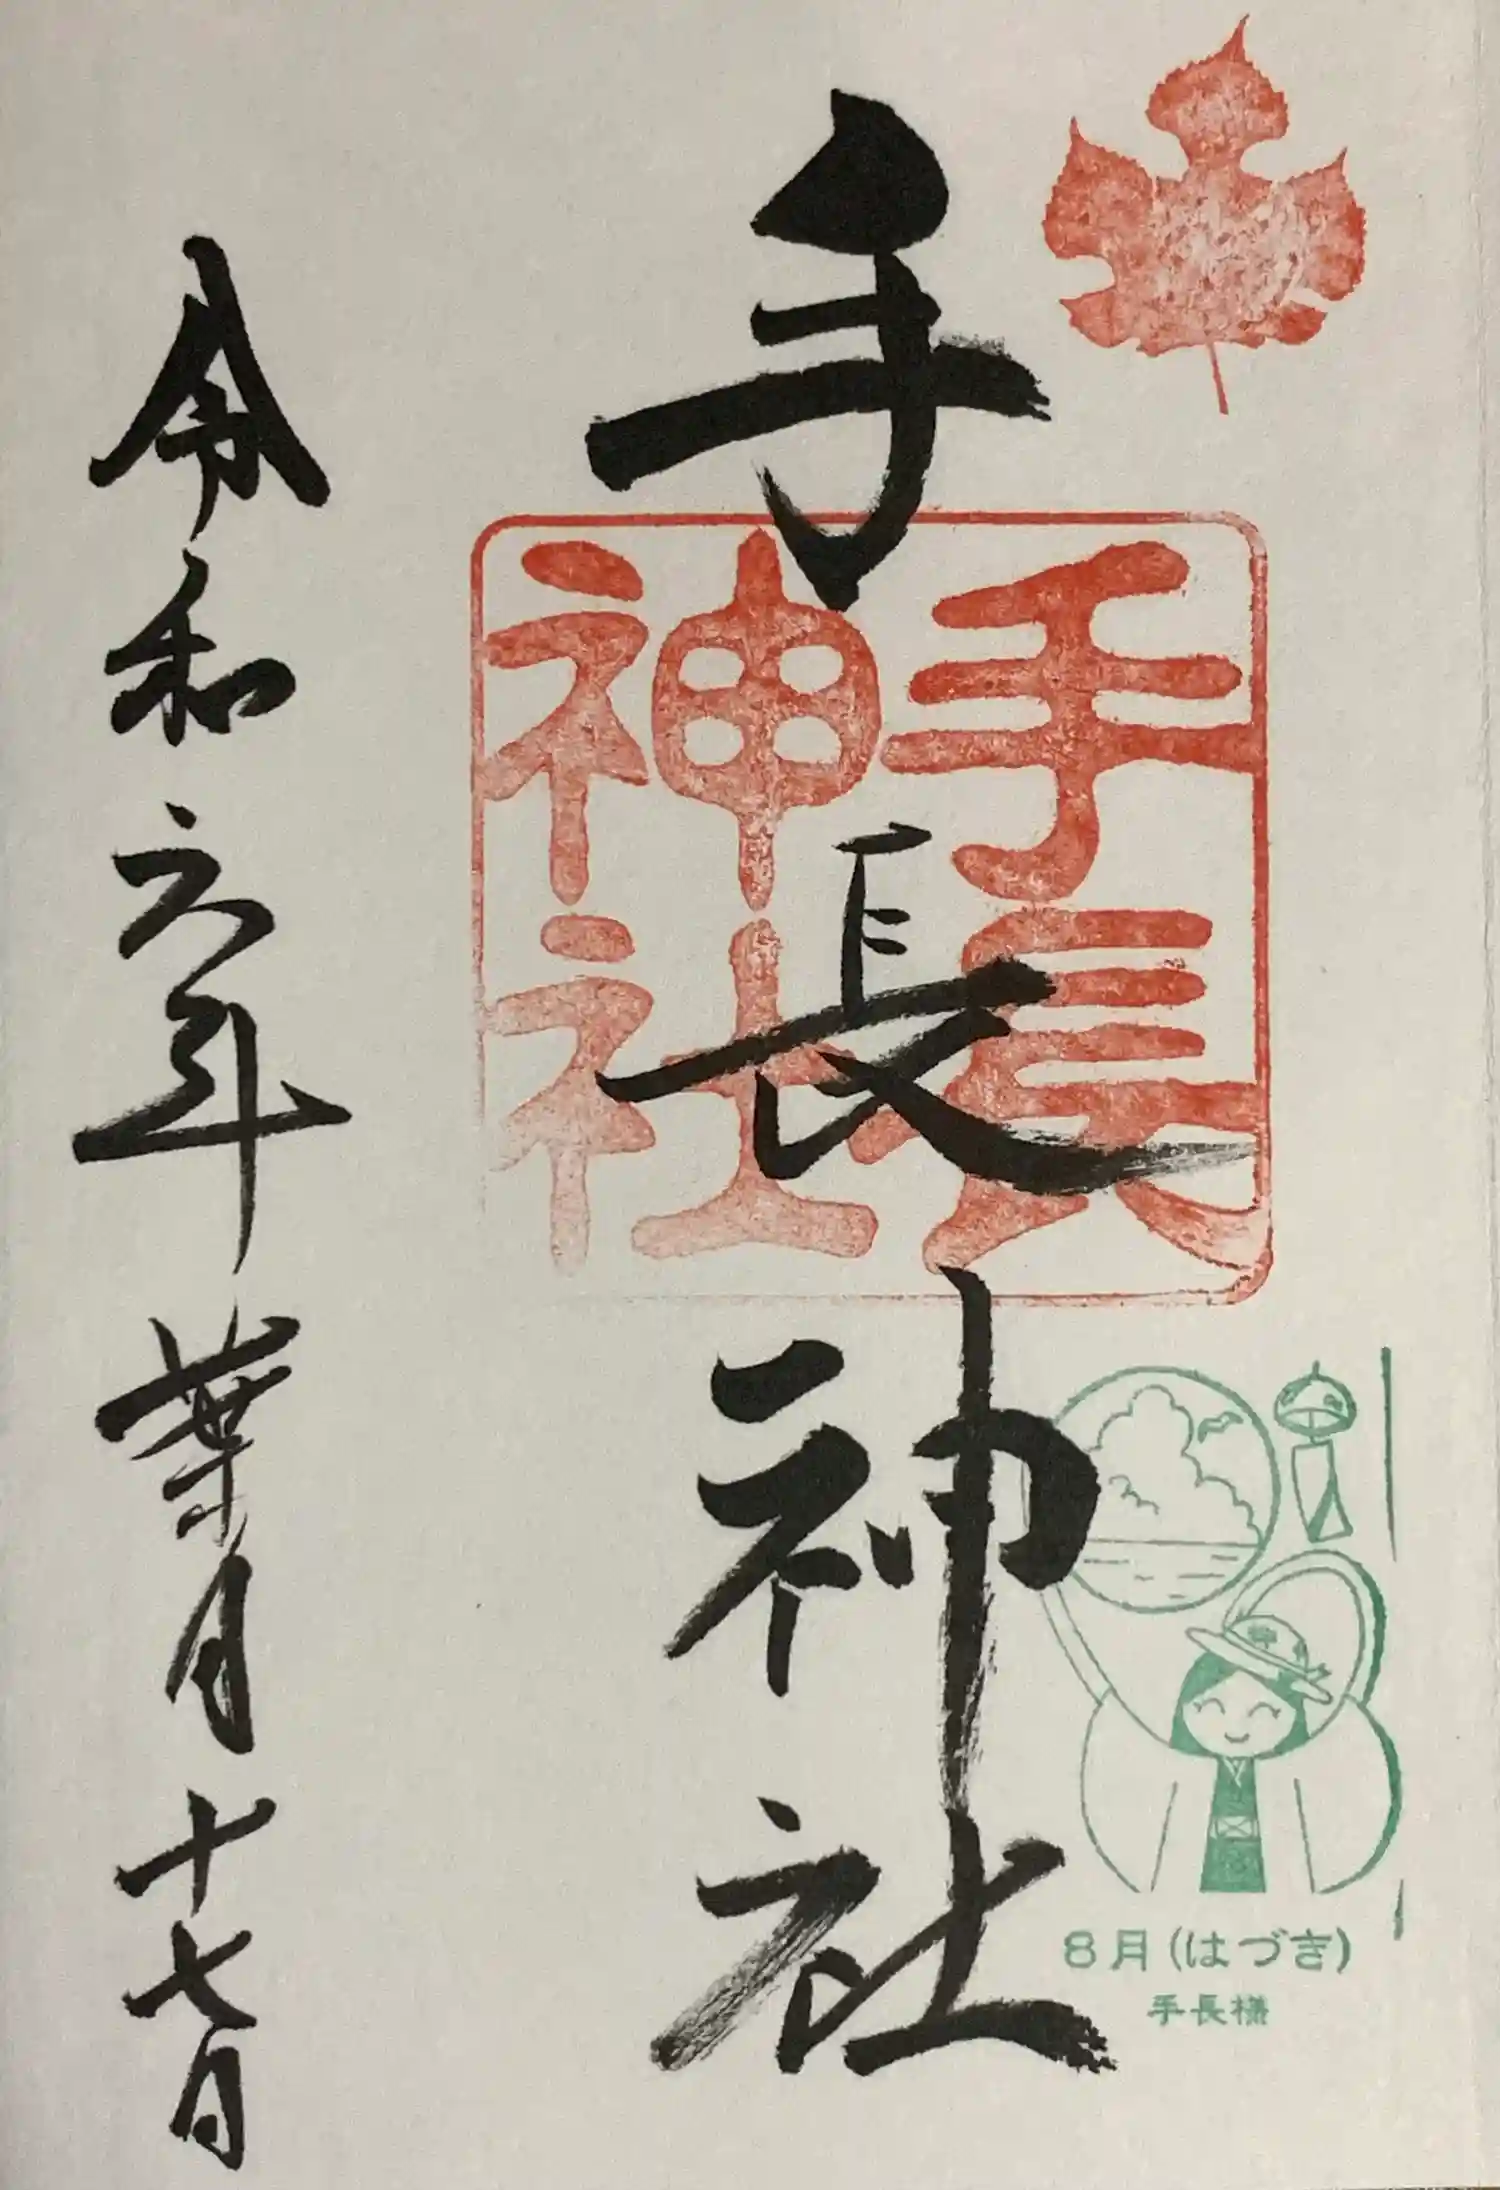 手長神社
手長
神社
8月(はづき)
手長様
令和六年葉月十七日